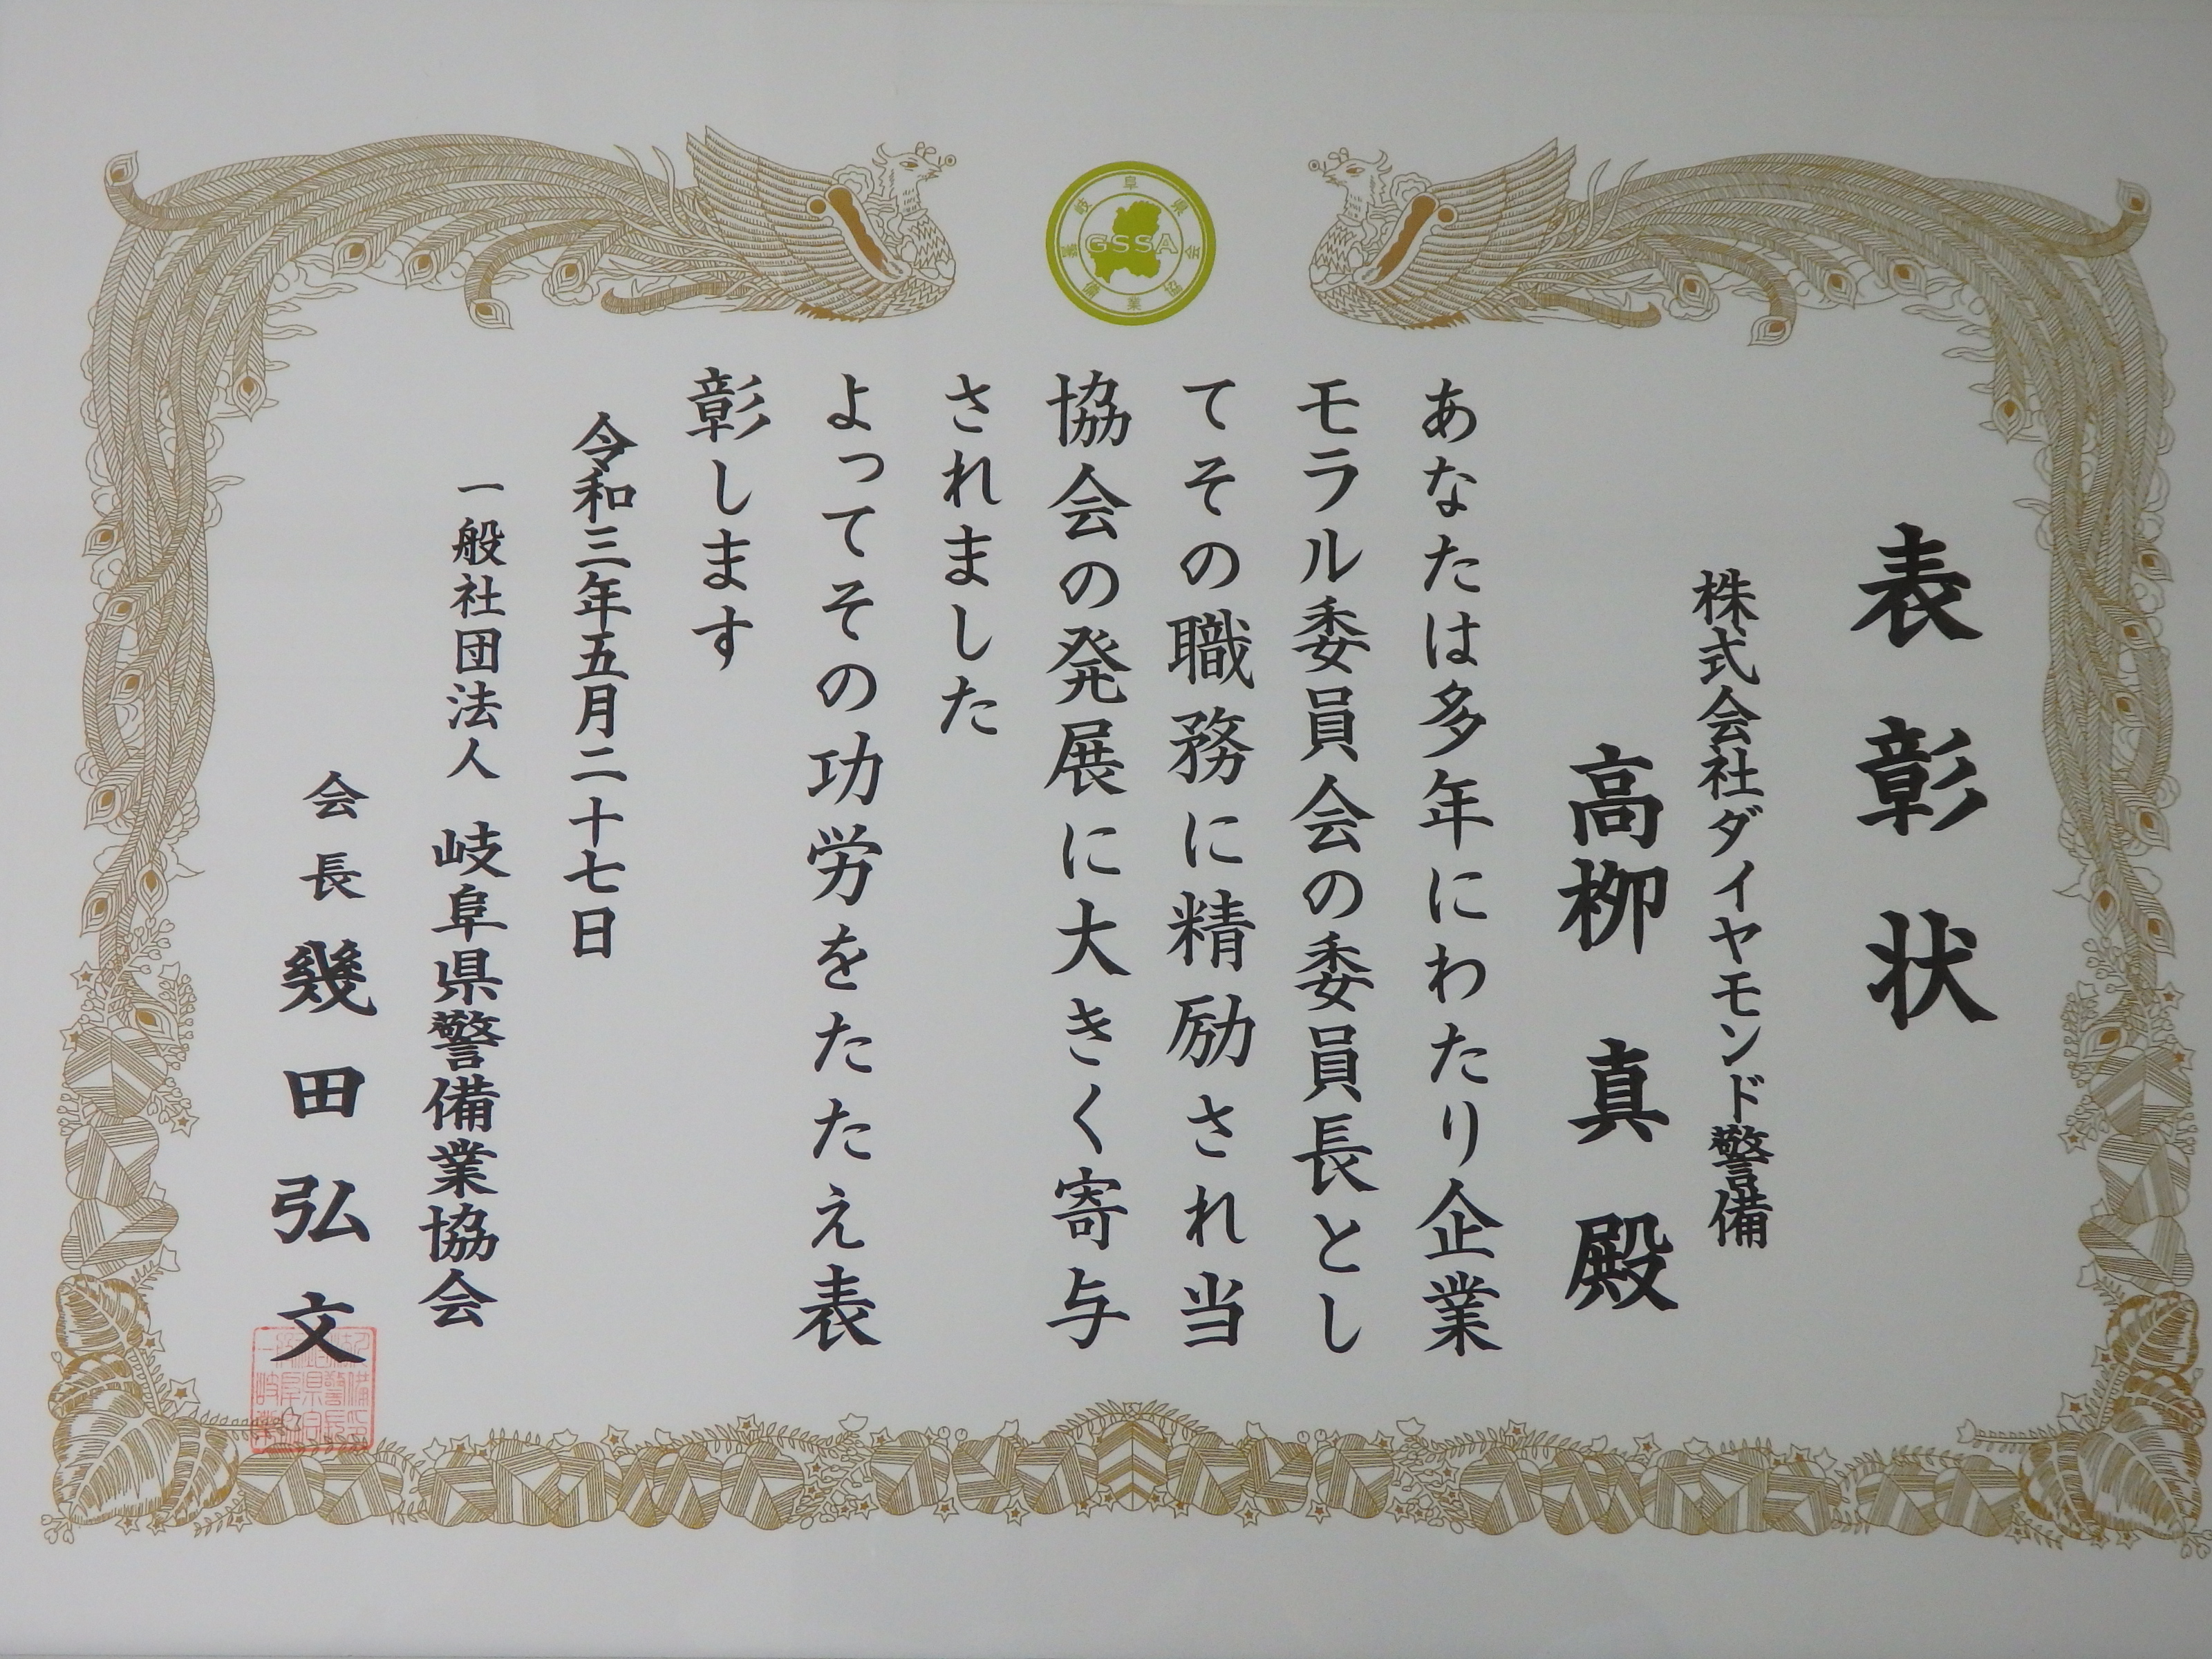 表彰状
株式会社ダイヤモンド警備
高栁 真 殿
あなたは多年にわたり企業
モラル委員会の委員長とし
てその職務に精励され当
協会の発展に大きく寄与
されました
よってその功労をたたえ表
彰します
令和三年五月二十七日
一般社団法人 岐阜県警備業協会
会長 幾田弘文
岐阜県警備業協会
GSSA